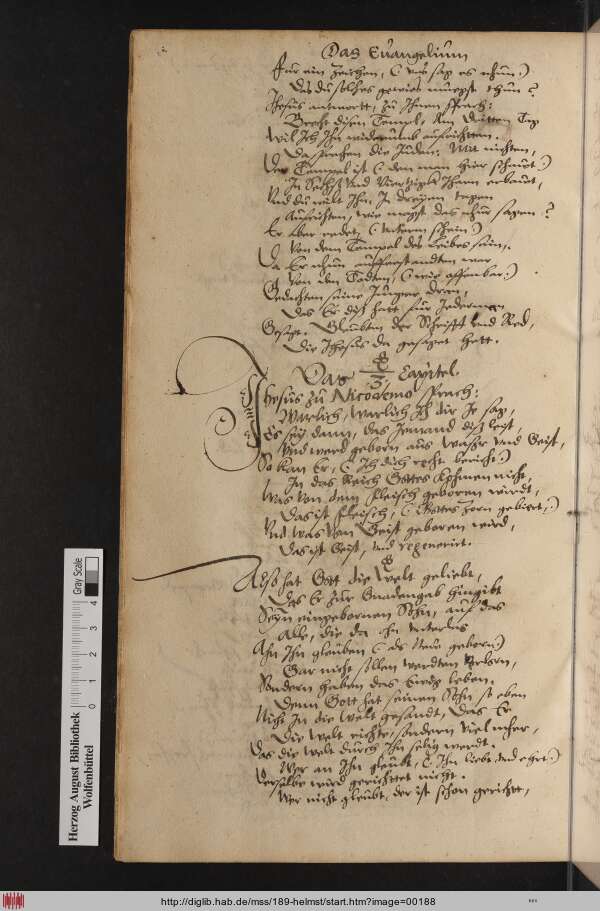 Das Euangelium
Für ein Zeichen, (: vns sag es nhun :)
Das du solches gewies mügest thun ?
Jhesus antwortt, zu Ihnen sprach:
Brecht disen Tempel, Am dritten Tag
Wil Ich Ihn widerumb auffrichten.
Da sprachen die Juden: Mit nichten,
Der Tempel ist (: den man hier schauet :)
In Sechs vnd viertzigk Iharn erbauet,
Vnd du wilt Ihn, In dreyen tagen
Auffrichten, wie magst das nhur sagen ?
Er aber redet, (: vnterm schein :)
Von dem Tempel des leibes sein,
Da Er nhun aufferstandten war
Von den Todten, (: wie offenbar :)
Gedachten seine Junger dran,
Das Er diß hatt für Jederman
Gesagt. Glaubten der Schrifft vnd Red,
Die Jhesus da gesaget hett.
Das 3 Capitel.
Jhesus zu Nicodemo sprach:
Warlich, warlich Ich dir Je sag,
Es sey dann, das Jemand
Vnd werd geborn aus Wasser vnd Geist,
So kan Er, (: Ich dich recht bericht :)
In das Reich Gottes kohmen nicht,
Was von dem fleisch geboren wirdt,
Das ist fleisch, (: Gottes Zorn gebiert, :)
Vnd was von Geist geboren wird,
Das ist Geist, vnd regenerirt.
Also hat Gott die Welt geliebt,
Das Er zur Gnadengab hingibt
Seyn eingebornen Sohn, auf das
Alle, die da ohn vnterlas
Ahn Ihn glauben (: als Neue geborn :)
Gar nicht sollen werdten verlorn,
Sondern haben das Ewig leben.
Denn Gott hat seinen Sohn so eben
Nicht In die Welt gesandt, Das Er
Die Welt richte, sondern viel mher,
Das die Welt durch Ihn selig werdt.
Wer an Ihn glaubt, (: Ihn liebt vnd ehrt :)
Derselbe wird gerichttet nicht.
Wer nicht glaubt, der ist schon gericht,
Herzog August Bibliothek
Wolfenbüttel
Gray Scale
0 1 2 3 4
http://diglib.hab.de/mss/189-helmst/start.htm?image=00188